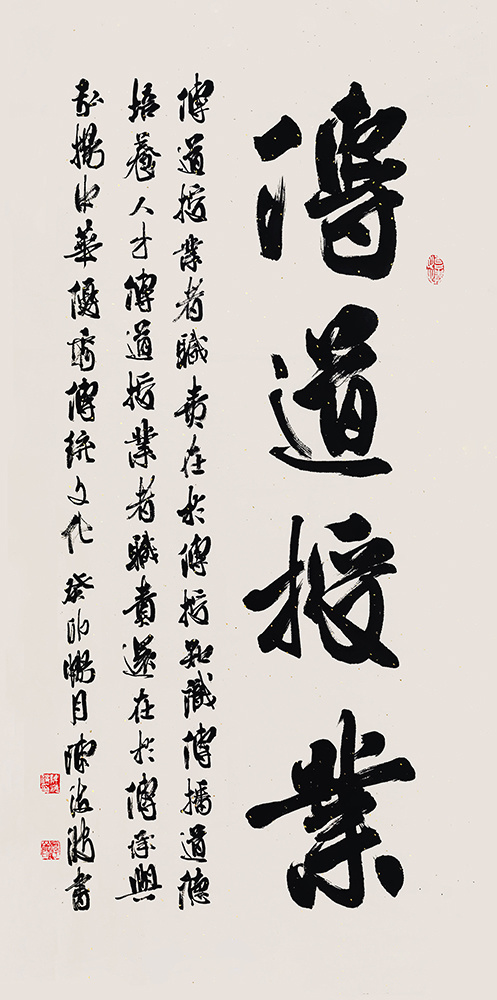 傳道授業
傳道授業者職責在於傳授知識傳播道德
培養人才傳道授業者職責還在於傳承與
弘揚中華優秀傳統文化 癸卯臘月 陳 書